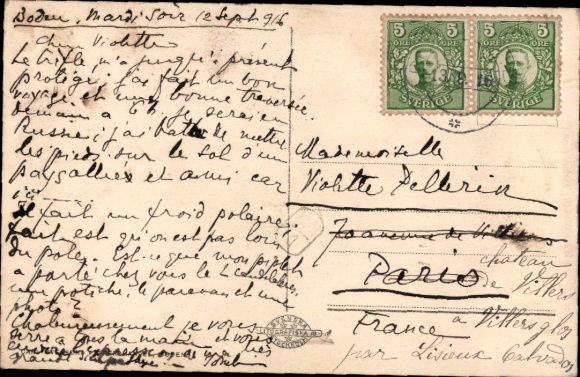 Boden, Mardi Soir 12 Sept 916
Chère Violette
Le trèfle m'a jusqu'à présent
protégé; j'ai fait un bon
voyage et une bonne traversée.
Demain à 6 h je serai en
Russie; j'ai hâte de mettre
les pieds sur le sol d'un
pays allié et ami car
il fait un froid polaire.
fait est qu'on est pas loin
du pôle. Est-ce que mon
a porté chez vous le
une potiche, le paravent et une
photo?
je vous
serre à tous la main et vous
5 ÖRE 5
SVERIGE
5 ÖRE 5
SVERIGE
13.9.16
Mademoiselle
Violette Pellerin
7 avenue de Villiers
Paris
château
de Villers
France
à Villers s/ glos
par Lisieux Calvados
SVENSKA
LITOGRAFISKA A.B.
STOCKHOLM